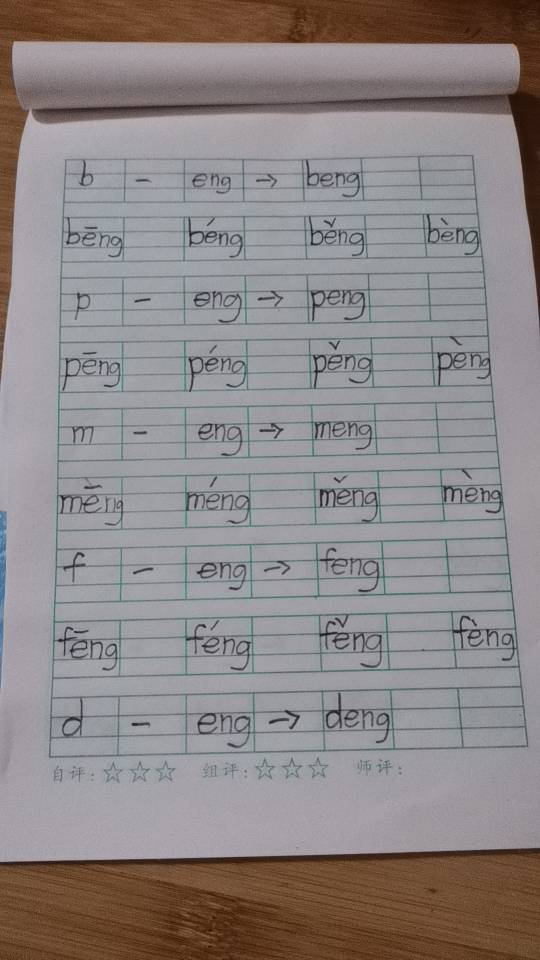 b - eng → beng
bēng béng běng bèng
p - eng → peng
pēng péng pěng pèng
m - eng → meng
mēng méng měng mèng
f - eng → feng
fēng féng fěng fèng
d - eng → deng
自评：☆☆☆ 组评：☆☆☆ 师评：